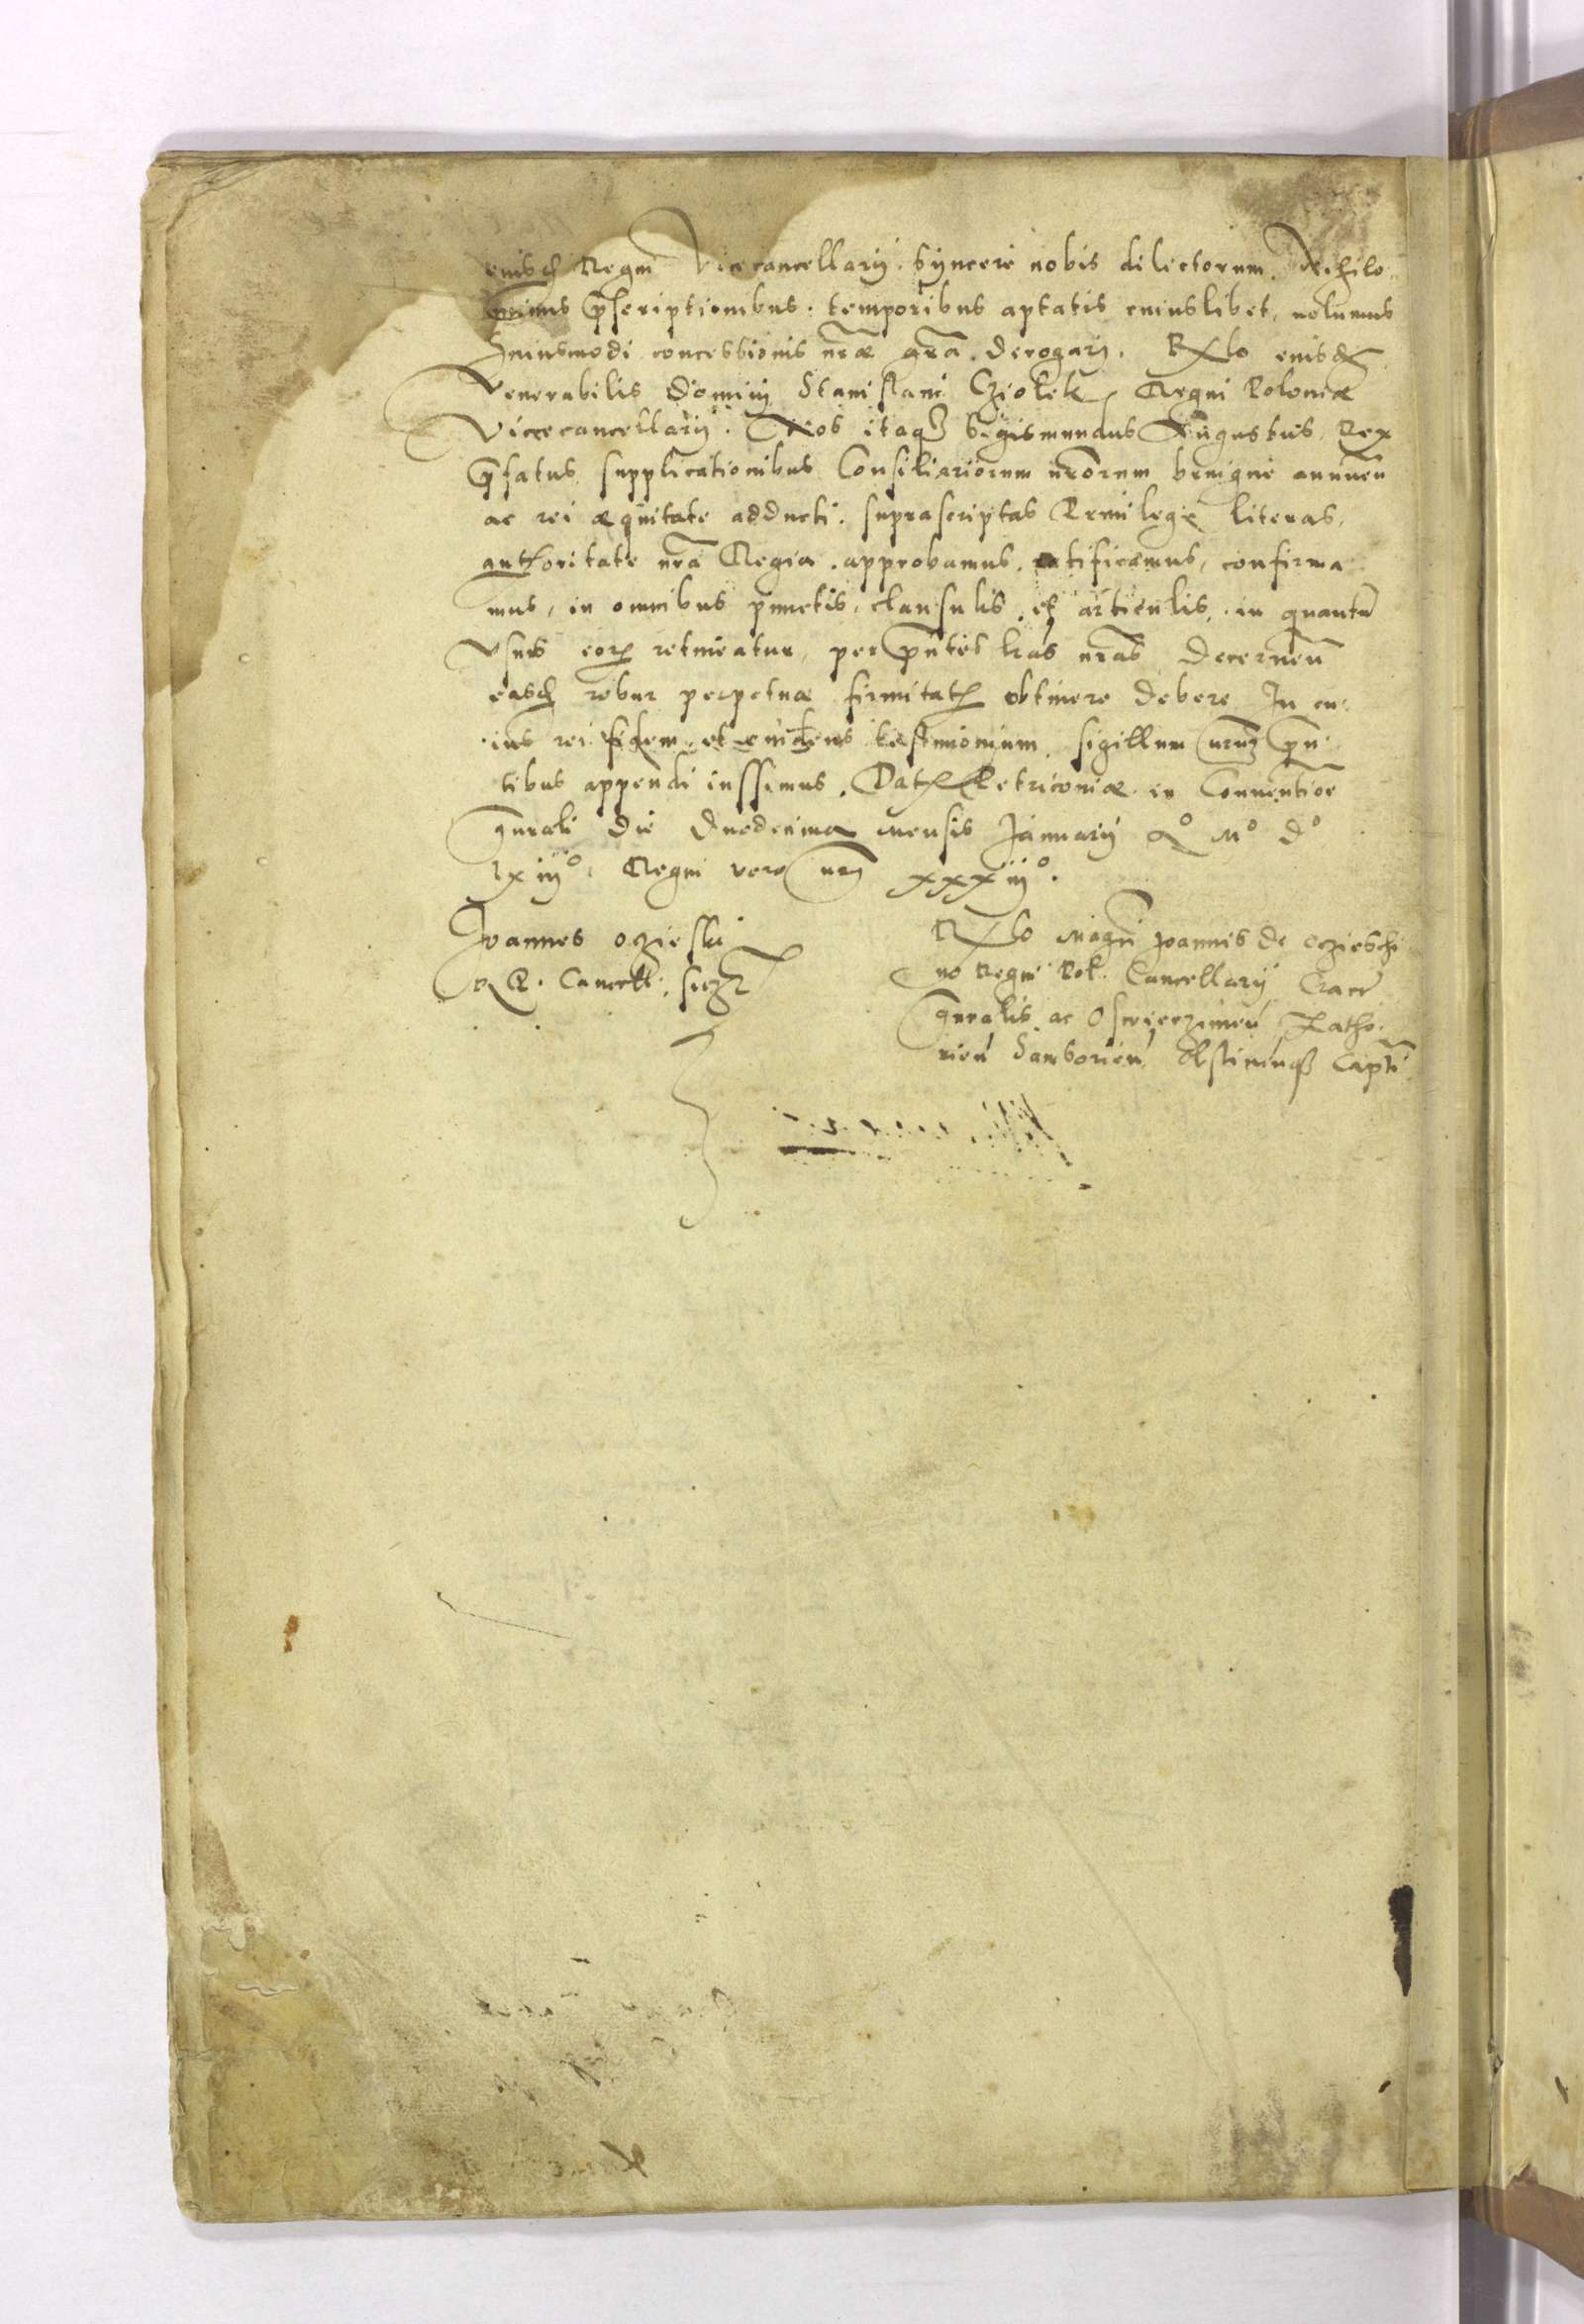 eiusdē Regni Vicecancellarij. Syncere nobis dilectorum.
p̄scriptionibus. temporibus aptatis cuiuslibet, uolumus
Huiusmodi concessionis nr̄æ gr̄a. derogari. Rlo eiusdē
Venerabilis Domini Stanislai Cziolek Regni Poloniæ
Vicecancellarij. Nos itaq₃ Sigismundus Augustus Rex
p̄fatus supplicationibus Consiliariorum nr̄orum benigne annuen̄
ac rei æquitate adducti. suprascriptas Priuilegij literas,
authoritate nr̄a Regia. approbamus. ratificamus, confirma
mus, in omnibus punctis, clausulis, et articulis, in quantū
Vsus eorꝝ retineatur, per p̄ntes lr̄as nr̄as Decernen̄
easdē robur perpetuæ firmitatꝭ obtinere debere In cu
ius rei fidem, et euidens testimonium sigillum nrūm p̄n
tibus appendi iussimus. Datꝭ Petricouiæ in Conuentioē
gn̄rali die duodecima mensis Januarij Aº Mº Dº
lxiijº. Regni vero nrī xxxiijº.
Joannes oczieski
R. P. Cancell. ssr̄
Rlo Magcī Joannis de oczieschi
no Regni Pol. Cancellarij Crac̄
gn̄ralis ac Oswieczimen̄ Zatho
rien̄ Samborien̄ Olstinenq₃ Captī